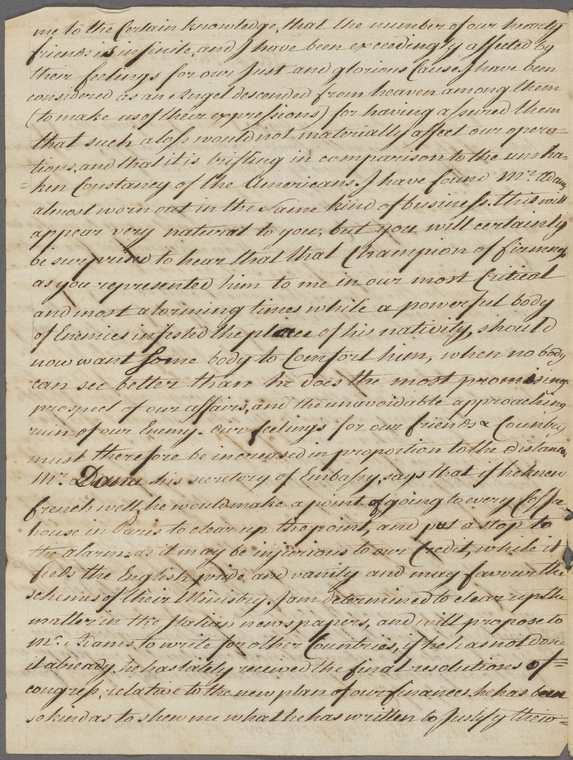 me to the Certain knowledge, that the number of our hearty
friends is infinite, and I have been exceedingly affected by
their feelings for our Just and glorious Cause, I have been
considered as an Angel descended from heaven among them
(to make use of their expressions) for having assured them
that such a loss would not materially affect our opera=
tions, and that it is trifling in comparison to the unsha=
=ken Constancy of the Americans. I have found Mr. Adams
almost worn out in the Same kind of business. this will
appear very natural to you, but you will certainly
be surprised to hear that that Champion of firmness,
as you represented him to me in our most Critical
and most alarming times while a powerful body
of Enemies infested the place of his nativity, should
now want Some body to Comfort him, when no body
can see better than he does the most promising
prospect of our affairs, and the unavoidable approaching
ruin of our Enemy. Our feelings for our friends & Country
must therefore be increased in proportion to the distance,
Mr. Dana his secretary of Embassy, says that if he knew
french well, he would make a point of going to every Coffe
house in Paris to clear up the point, and put a stop to
the alarm as it may be injurious to our Credit, while it
feeds the English pride and vanity and may favour the
schemes of their Ministry. I am determined to clear up the
matter in the Italian newspapers, and will propose to
Mr. Adams to write for other Countries, if he has not done
it already. he has lately received the final resolutions of=
congress, relative to the new plan of our finances. he has been
so kind as to shew me what he has written to Justify their=